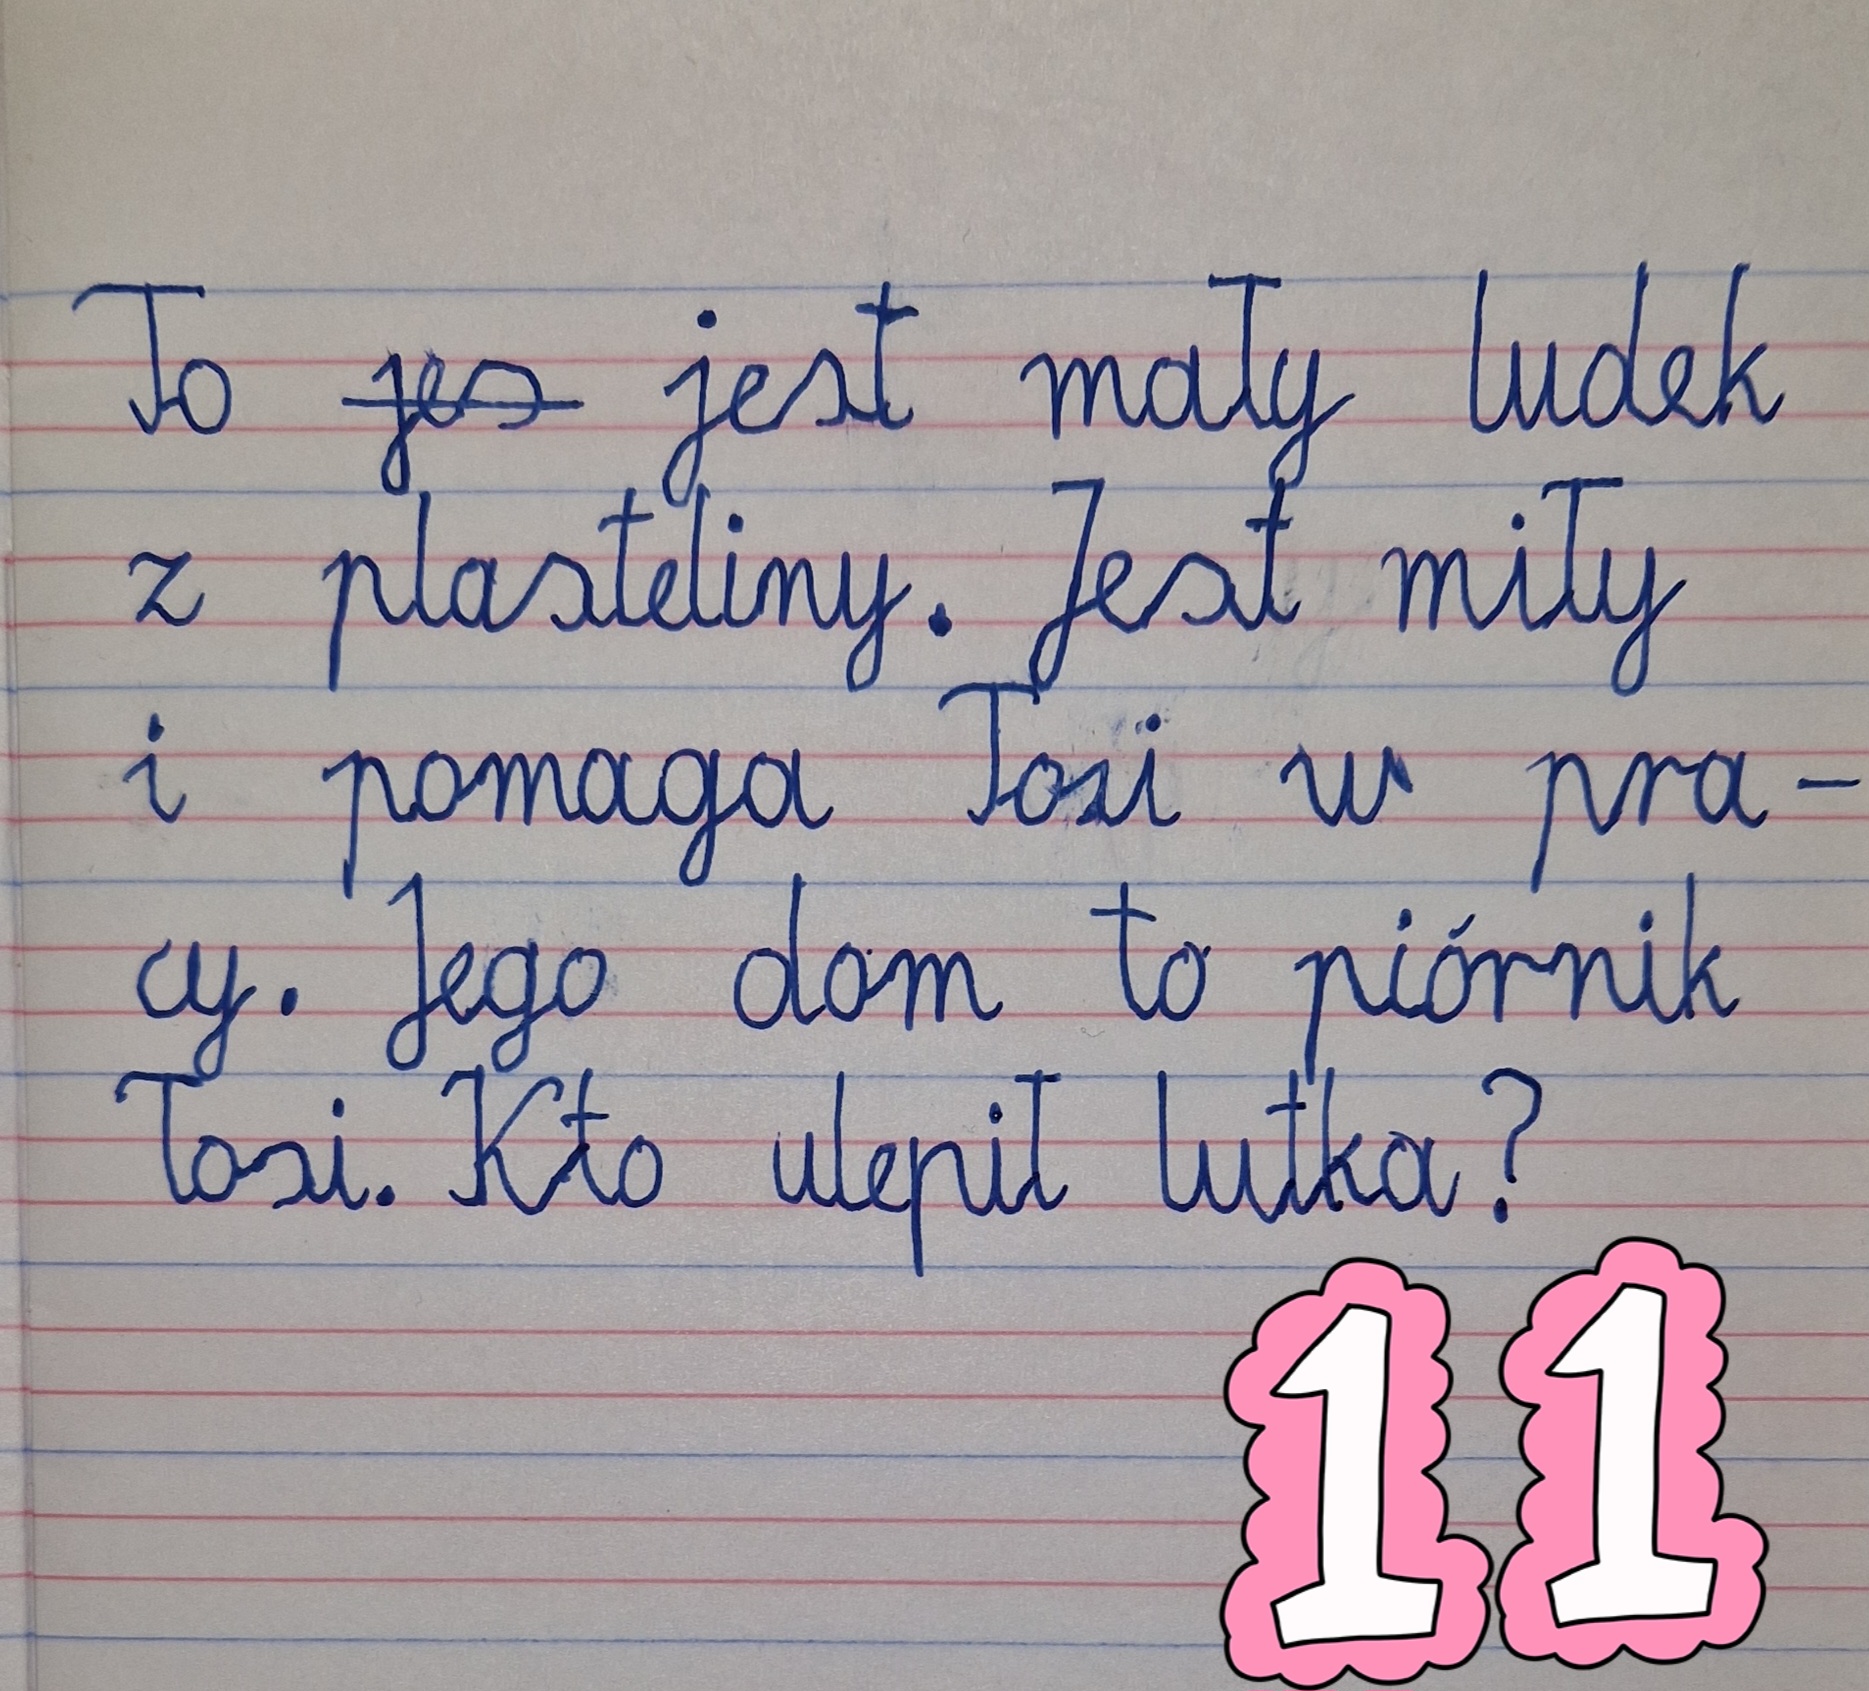 To jes jest mały ludek
z plasteliny. Jest miły
i pomaga Tosi w pra-
cy. Jego dom to piórnik
Tosi. Kto ulepił lutka?
11